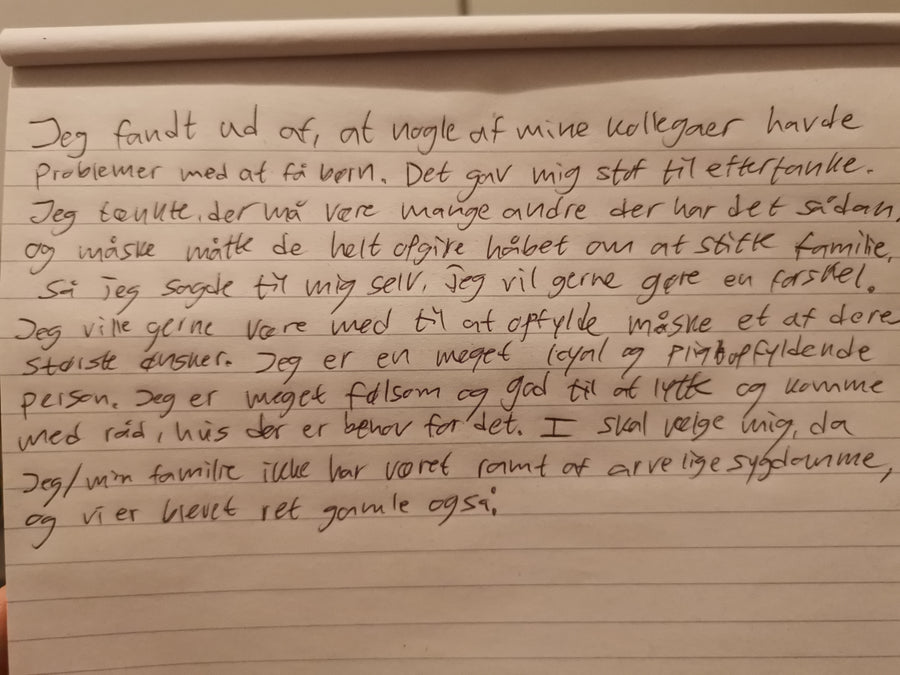 Jeg fandt ud af, at nogle af mine kollegaer havde
problemer med at få børn. Det gav mig stof til eftertanke.
Jeg tænkte, der må være mange andre der har det sådan,
og måske måtte de helt opgive håbet om at stifte familie,
så jeg sagde til mig selv, jeg vil gerne gøre en forskel.
Jeg ville gerne være med til at opfylde måske et af deres
største ønsker. Jeg er en meget loyal og pligtopfyldende
person. Jeg er meget følsom og god til at lytte og komme
med råd, hvis der er behov for det. I skal vælge mig, da
jeg/min familie ikke har været ramt af arvelige sygdomme,
og vi er blevet ret gamle også.